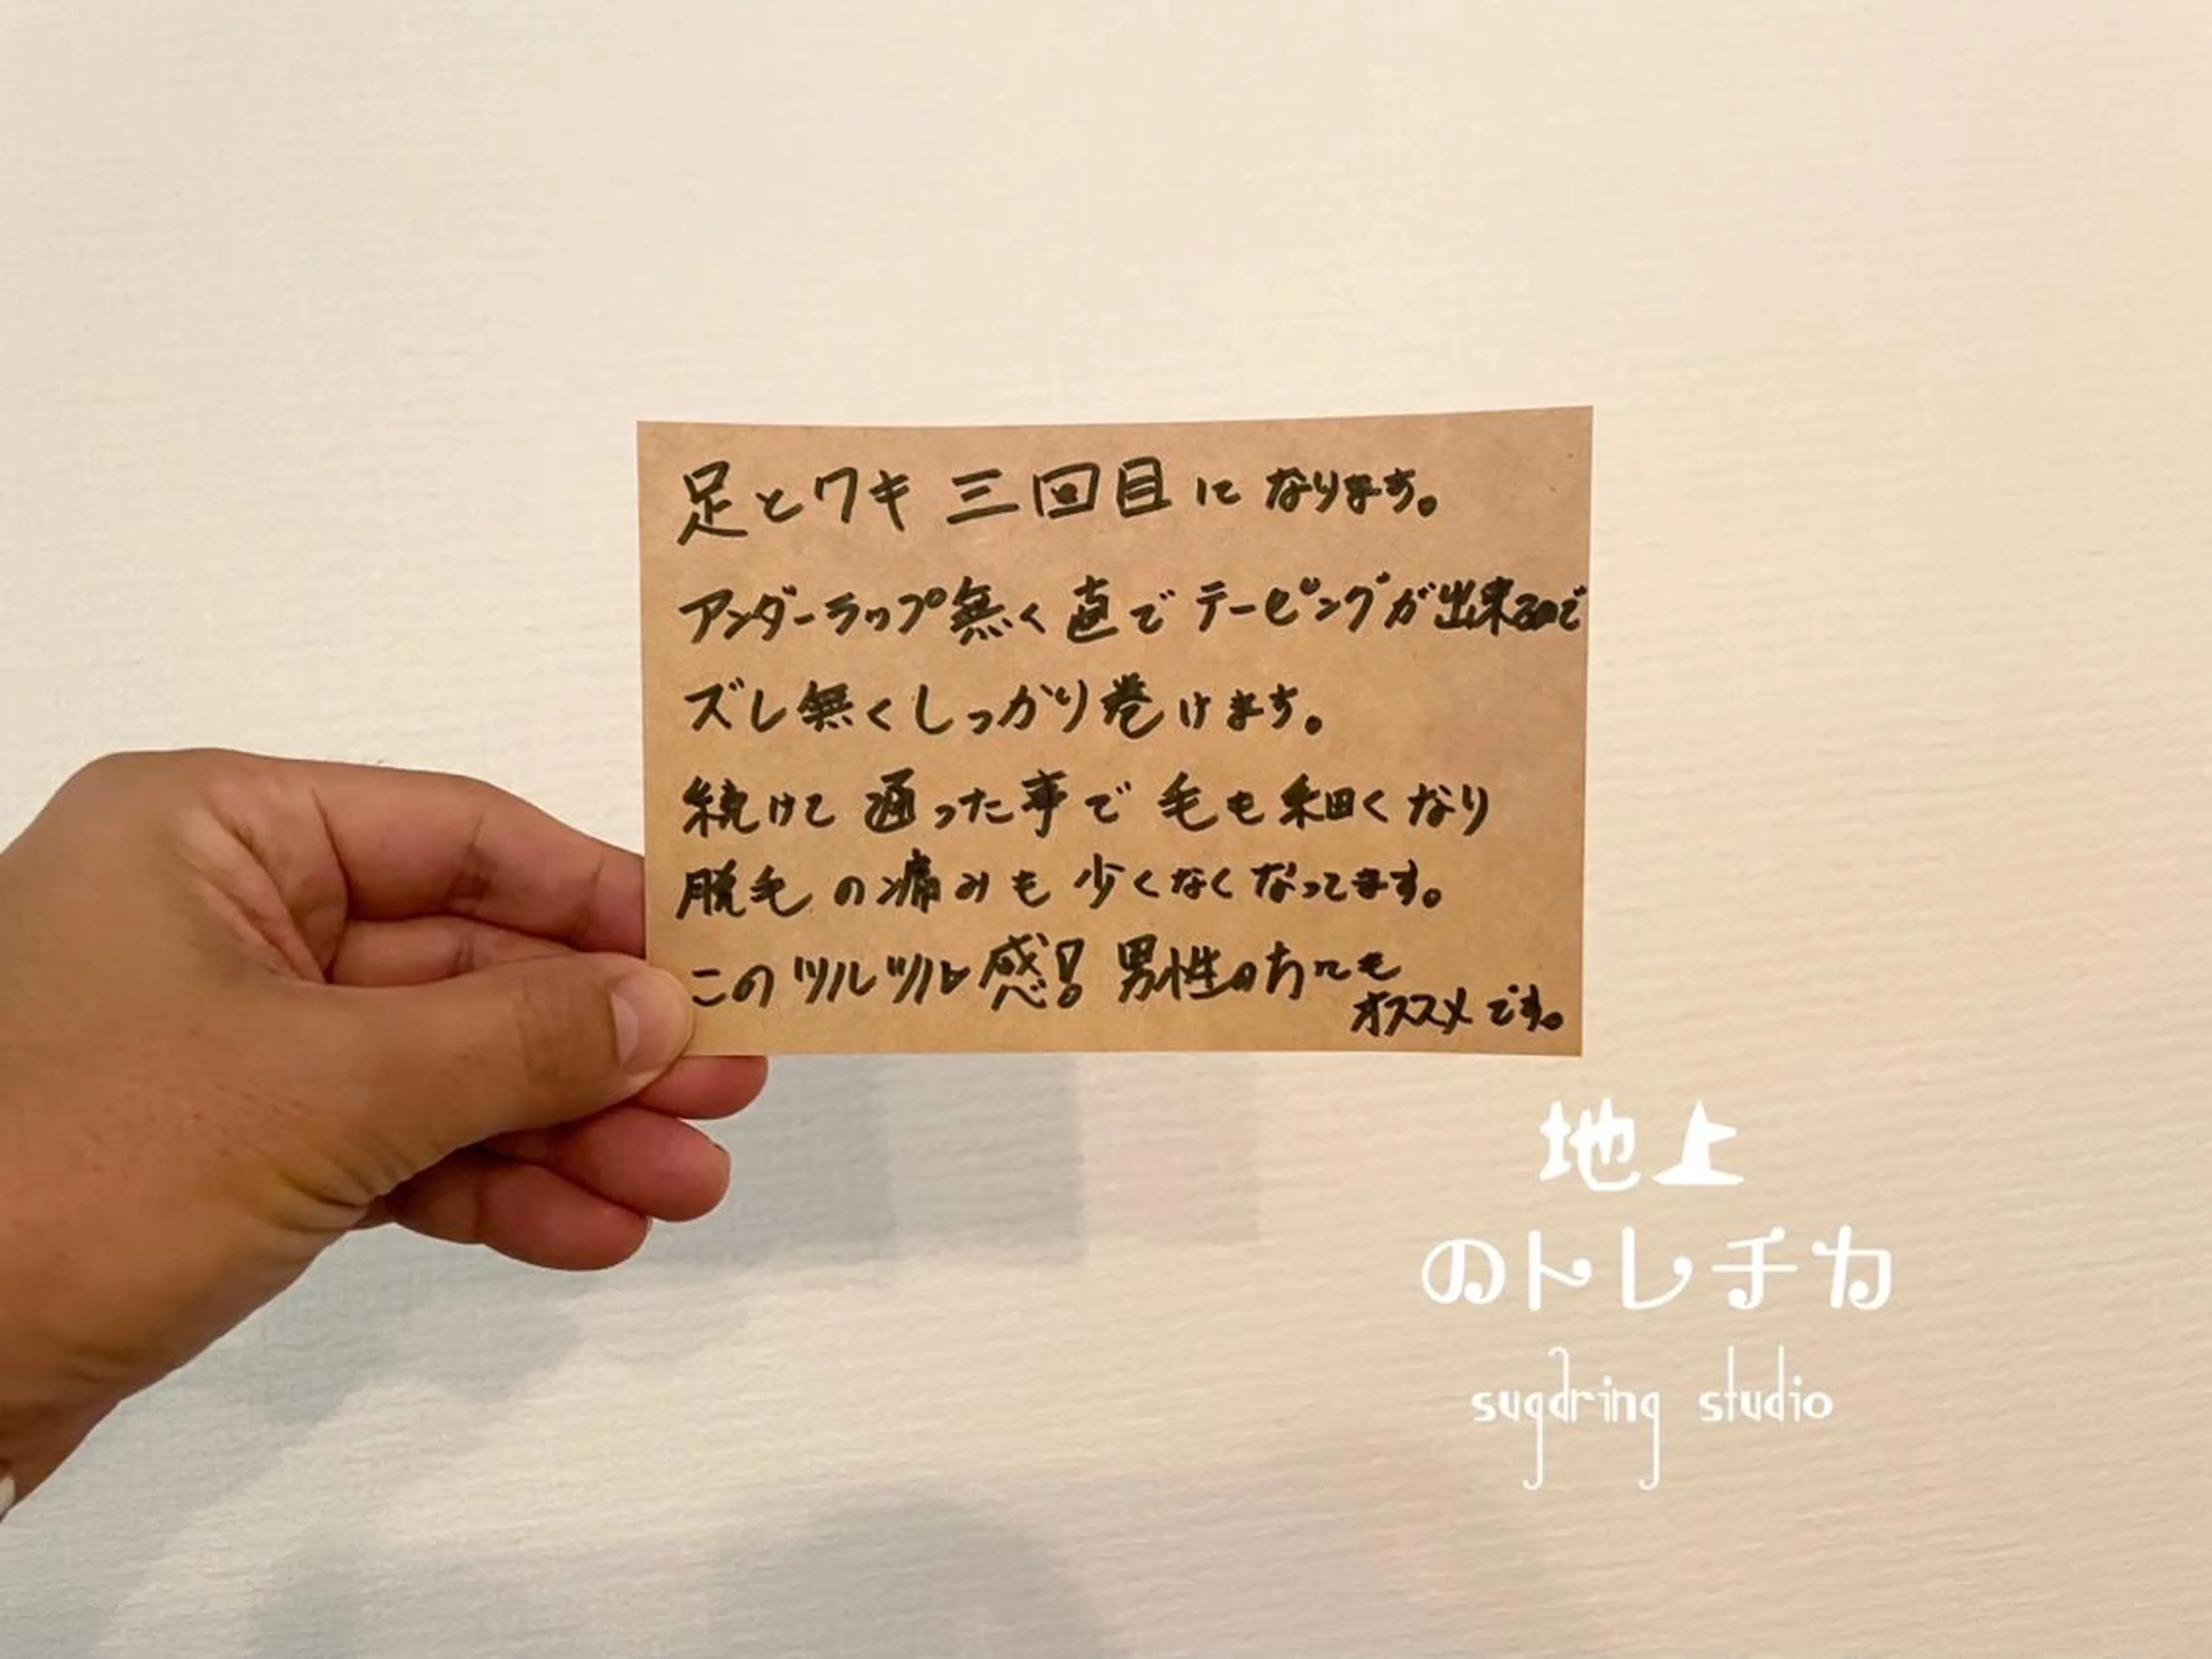 足とワキ 三回目になります。
アンダーラップ無く直でテーピングが出来るので
ズレ無くしっかり巻けます。
続けて通った事で毛も細くなり
脱毛の痛みも少くなくなってます。
このツルツル感!男性の方にも
オススメです。
地上
のトレチカ
sugaring studio